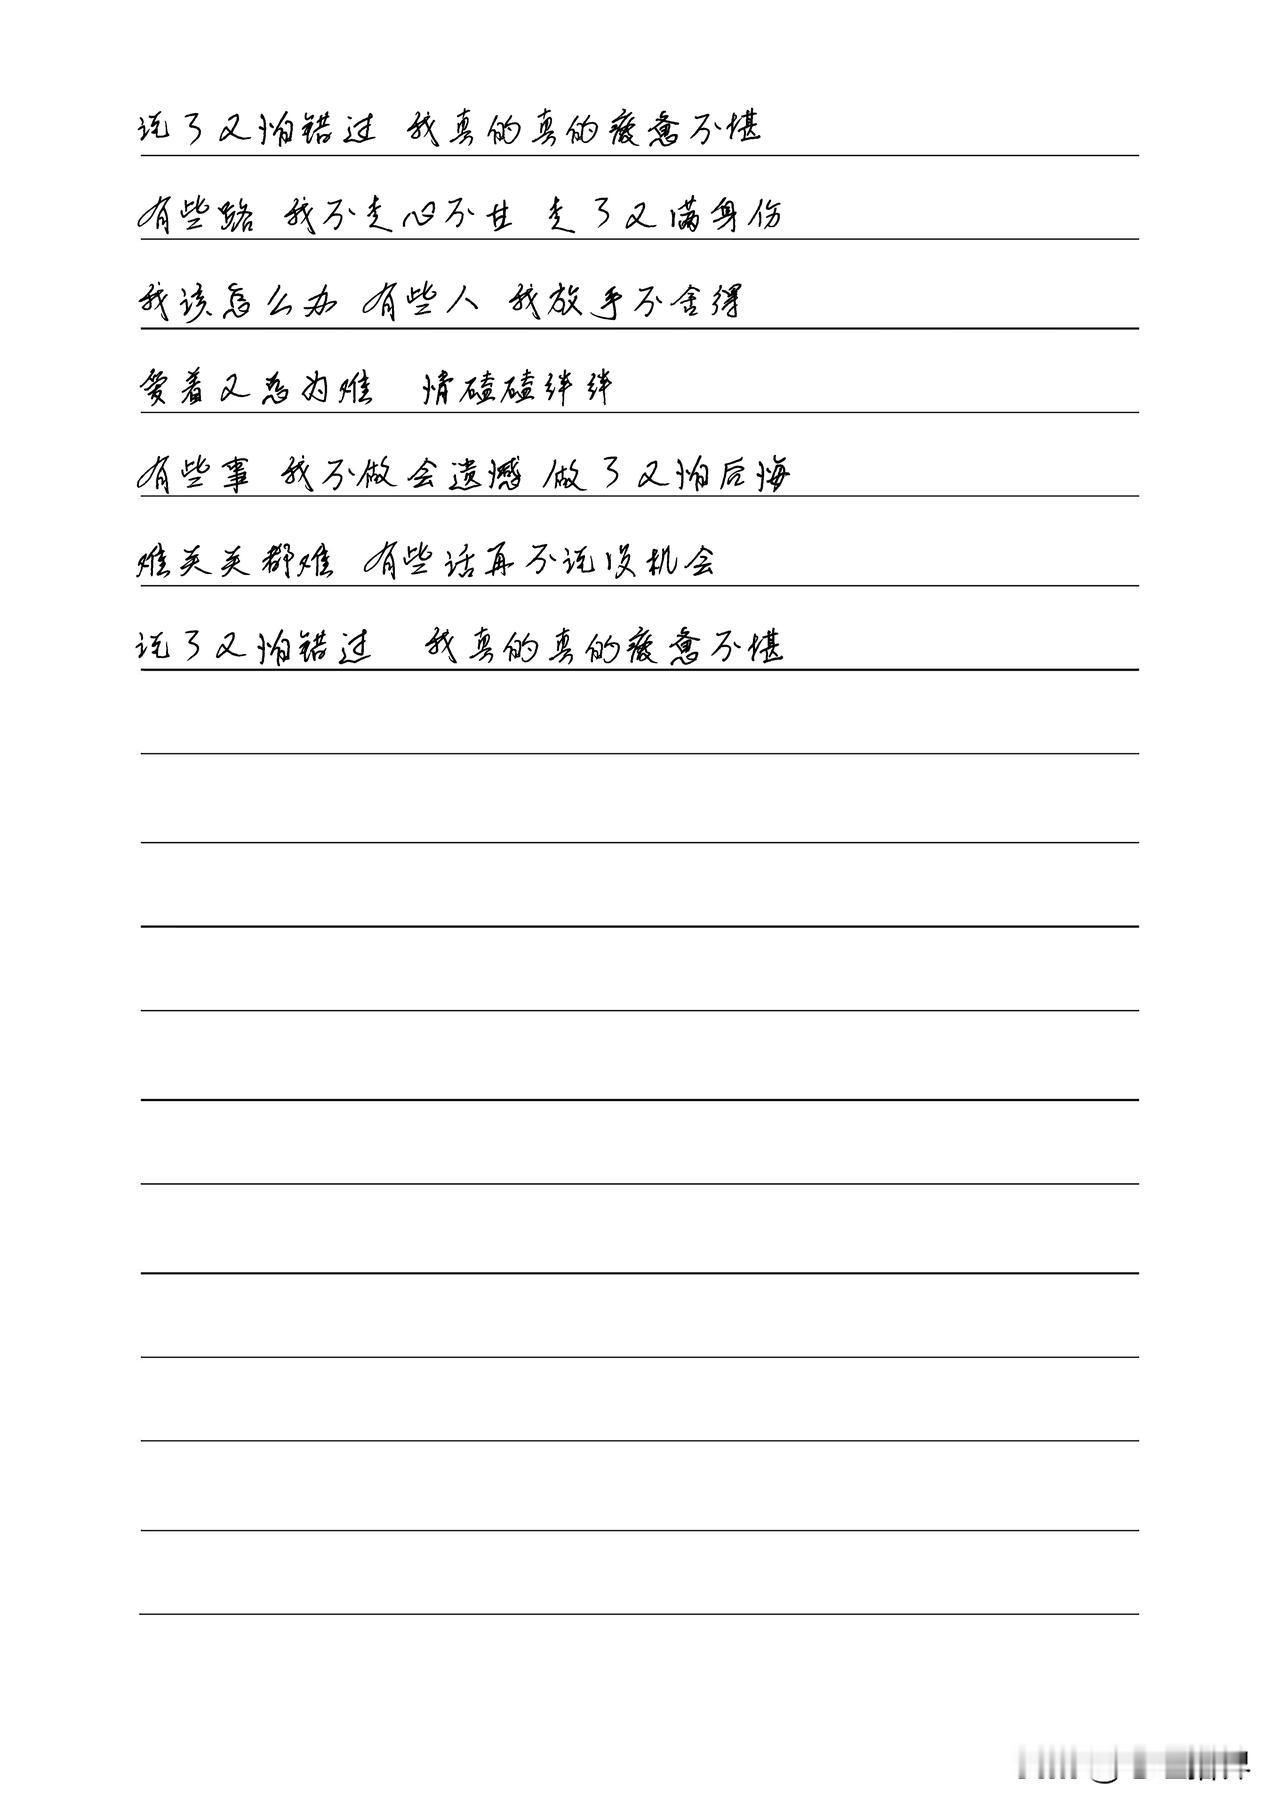 说了又怕错过 我真的真的疲惫不堪
有些路 我不走心不甘 走了又满身伤
我该怎么办 有些人 我放手不舍得
爱着又忍为难 情磕磕绊绊
有些事 我不做会遗憾 做了又怕后悔
难关关都难 有些话再不说没机会
说了又怕错过 我真的真的疲惫不堪